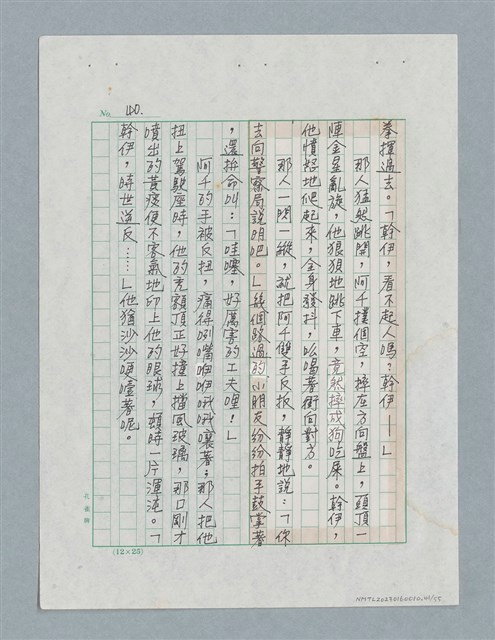 No. 40.
拳揮過去。「幹伊,看不起人嗎?幹伊——」
那人猛然跳開,阿千撲個空,摔在方向盤上,頭頂一
陣金星亂旋,他狠狠地跳下車,竟然摔成狗吃屎。幹伊,
他憤怒地爬起來,全身發抖,吆喝著衝向對方。
那人一閃一縱,就把阿千雙手反扳,靜靜地說:「你
去向警察局說明吧。」幾個路過的小朋友紛紛拍手鼓掌著
,還拚命叫:「哇噻,好厲害的工夫哩!」
阿千的手被反扭,痛得咧嘴咿咿哦哦嚷著;那人把他
扭上駕駛座時,他的禿額頂正好撞上擋風玻璃,那口剛才
噴出的黃痰便不客氣地印上他的眼球,頓時一片渾沌。「
幹伊,時世道反……」他猶沙沙吧噎著呢。
(12×25)